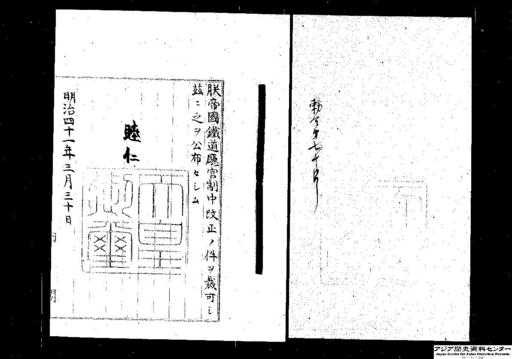 勅令第七十号
朕帝國鐵道廳官制中改正ノ件ヲ裁可シ
茲ニ之ヲ公布セシム
睦仁
天皇
御璽
明治四十一年三月三十日
アジア歴史資料センター
Japan Center for Asian Historical Records